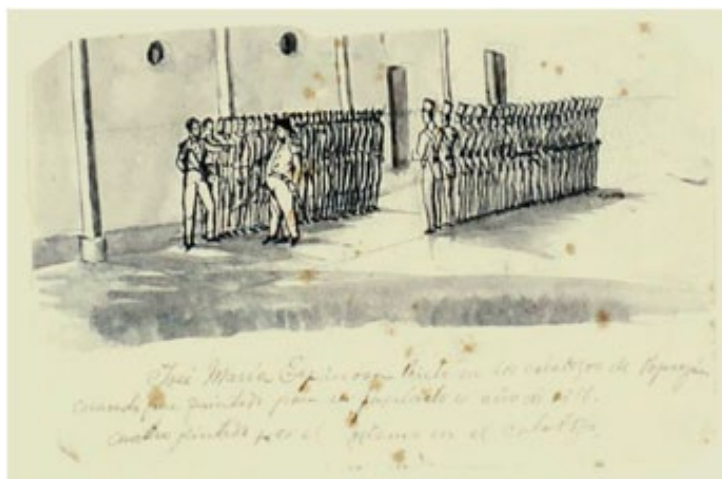 José María Espinosa Prieto en los calabozos de Popayán
cuando fue quintado para ser fusilado el año de 1816.
Cuadro pintado por el mismo en el calabozo.